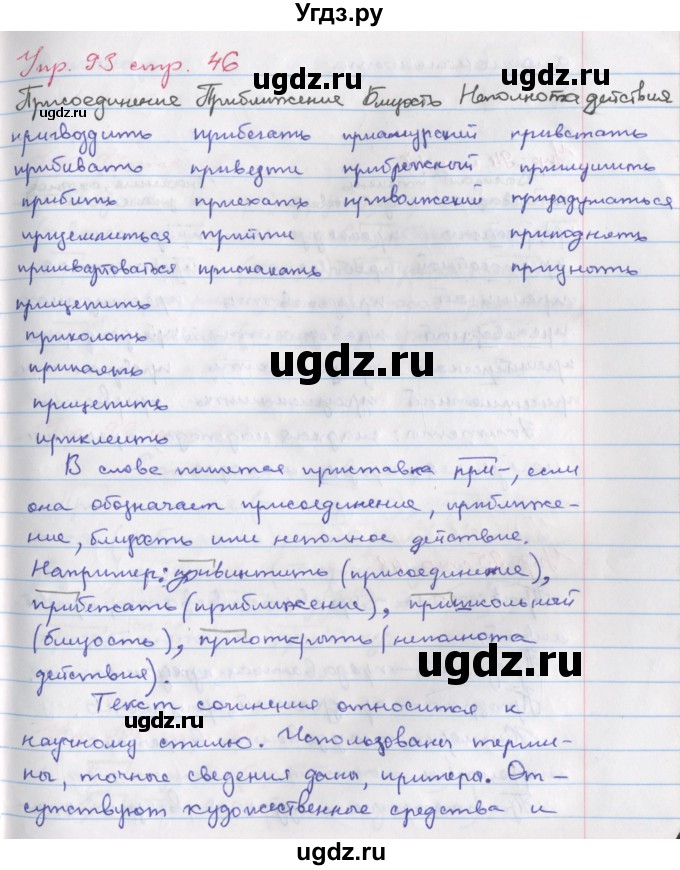 Угдз.ру
Упр. 93 стр. 46
ugdz.ru ugdz.ru ugdz.ru
Присоединение Приближение Близость Неполнота действия
пригвоздить прибегать приамурский привстать
прибивать привезти прибрежный приглушить
прибить приехать приволжский призадуматься
приземлиться прийти приподнять
пришвартоваться прискакать пригнуть
прищепить
приколоть
ugdz.ru
припаять
прицепить
приклеить
В слове пишется приставка при-, если
она обозначает присоединение, приближе-
ние, близость или неполное действие.
ugdz.ru ugdz.ru
Например: привинтить (присоединение),
прибежать (приближение), пришкольный
(близость), приоткрыть (неполнота
ugdz.ru
действия).
Текст сочинения относится к
ugdz.ru ugdz.ru
научному стилю. Использованы терми-
ны, точные сведения даны, примеры. От-
сутствуют художественные средства и
ugdz.ru